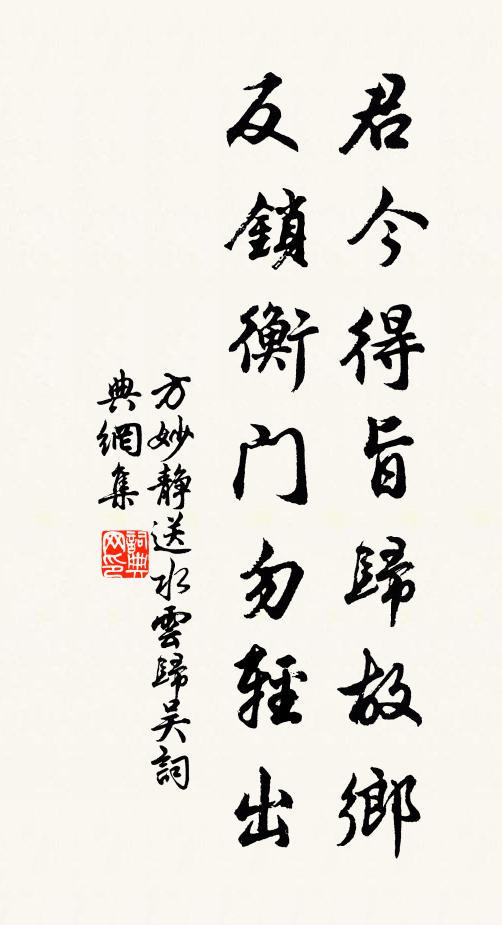 君今得旨歸故鄉
反鎖衡门勿輕出
方妙静送水雲歸吴詞
典網集
詞典
网印